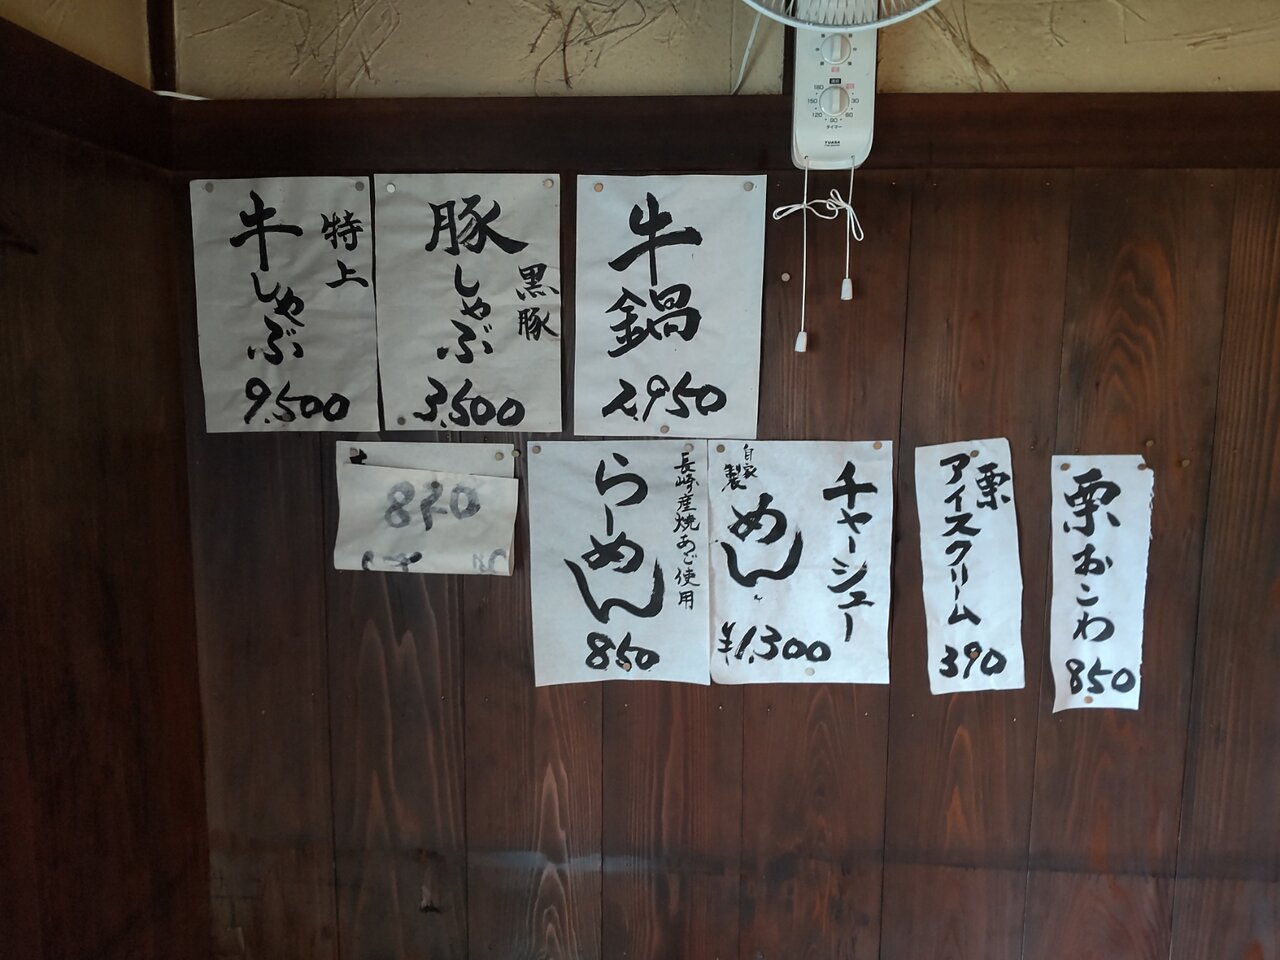 特上
牛しゃぶ
9,500
黒豚
豚しゃぶ
3,500
牛鍋
2,950
長崎産焼あご使用
らーめん
850
チャーシュー
自家製
めん
¥1,300
栗
アイスクリーム
390
栗おこわ
850
180
150
120
90
60
30
タイマー
YUASA